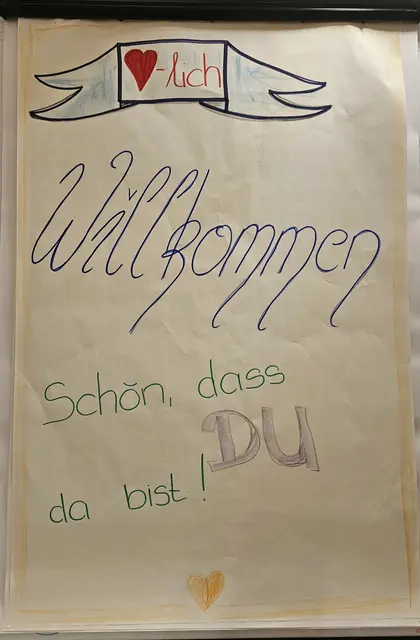 ❤-lich
Willkommen
Schön, dass
DU
da bist!